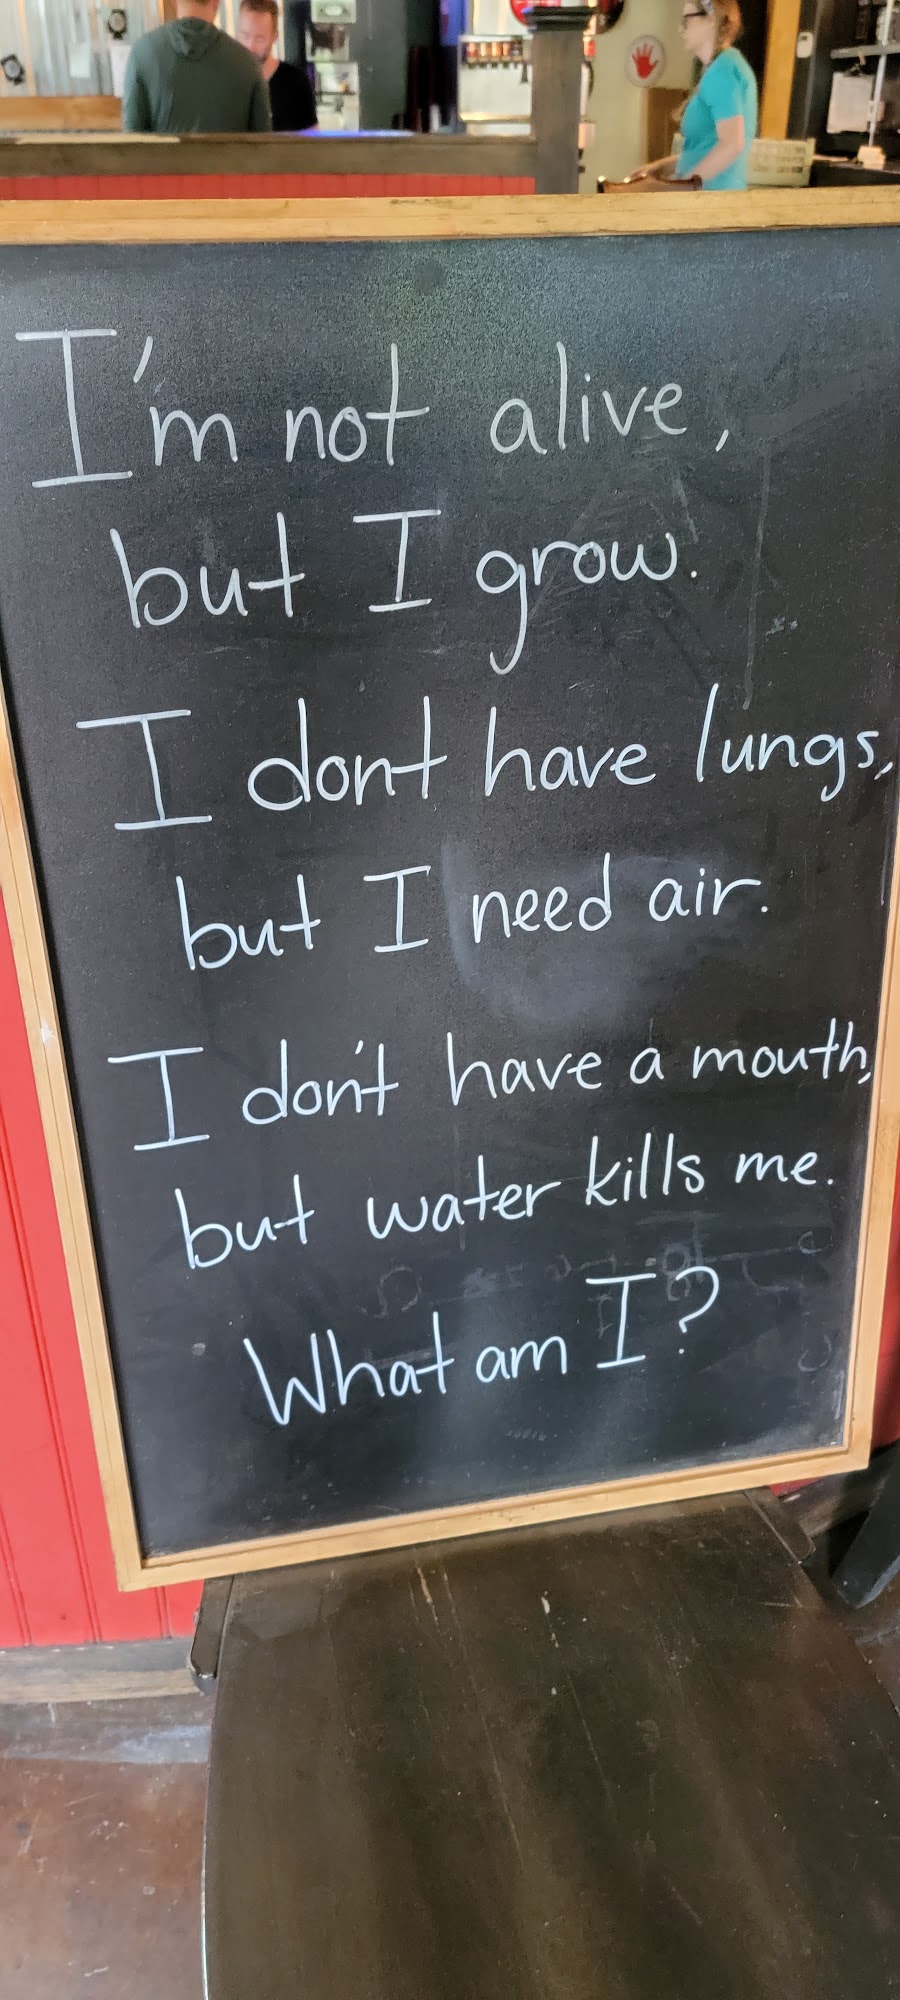 I'm not alive,
but I grow.
I dont have lungs,
but I need air.
I don't have a mouth,
but water kills me.
What am I?